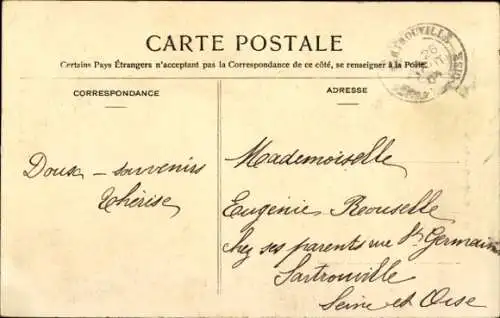 CARTE POSTALE
Certains Pays Étrangers n'acceptant pas la Correspondance de ce côté, se renseigner à la Poste.
CORRESPONDANCE
ADRESSE
SARTROUVILLE
26
OISE
Doux – souvenirs
Thérèse
Mademoiselle
Eugénie Reouselle
Chez ses parents rue St Germain
Sartrouville
Seine et Oise